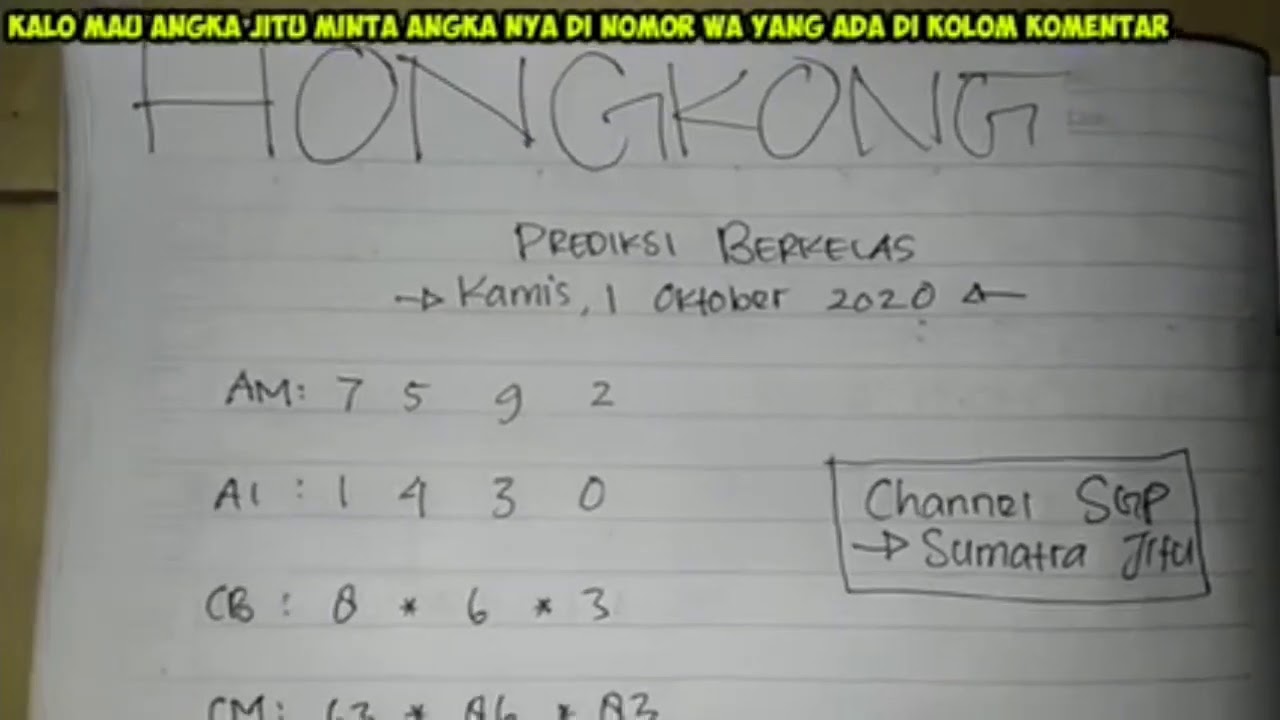 KALO MAU ANGKA JITU MINTA ANGKA NYA DI NOMOR WA YANG ADA DI KOLOM KOMENTAR
HONGKONG
PREDIKSI BERKELAS
→ Kamis, 1 Oktober 2020 ←
AM: 7 5 9 2
AI : 1 4 3 0
Channel SGP
→ Sumatra Jitu
CB : 8 * 6 * 3
CM: 63 * 86 * 83